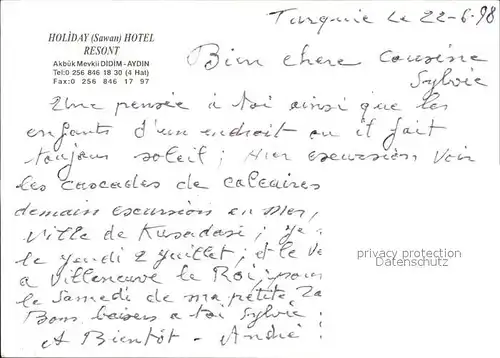 Turquie Le 22-6-98
HOLİDAY (Sawan) HOTEL
RESONT
Akbük Mevkii DIDİM - AYDIN
Tel:0 256 846 18 30 (4 Hat)
Fax:0 256 846 17 97
Bien chere cousine
Sylvie
Une pensée a toi ainsi que les
enfants d'un endroit ou il fait
toujours soleil; Hier excursion voir
les cascades de calcaires
demain excursion en Mer,
Ville de Kusadasi;
le jeudi 2 juillet; et le Ve
a Villeneuve le Roi, pour
le Samedi de ma petite
Bons baisers a toi Sylvie
A Bientôt - André
privacy protection
Datenschutz